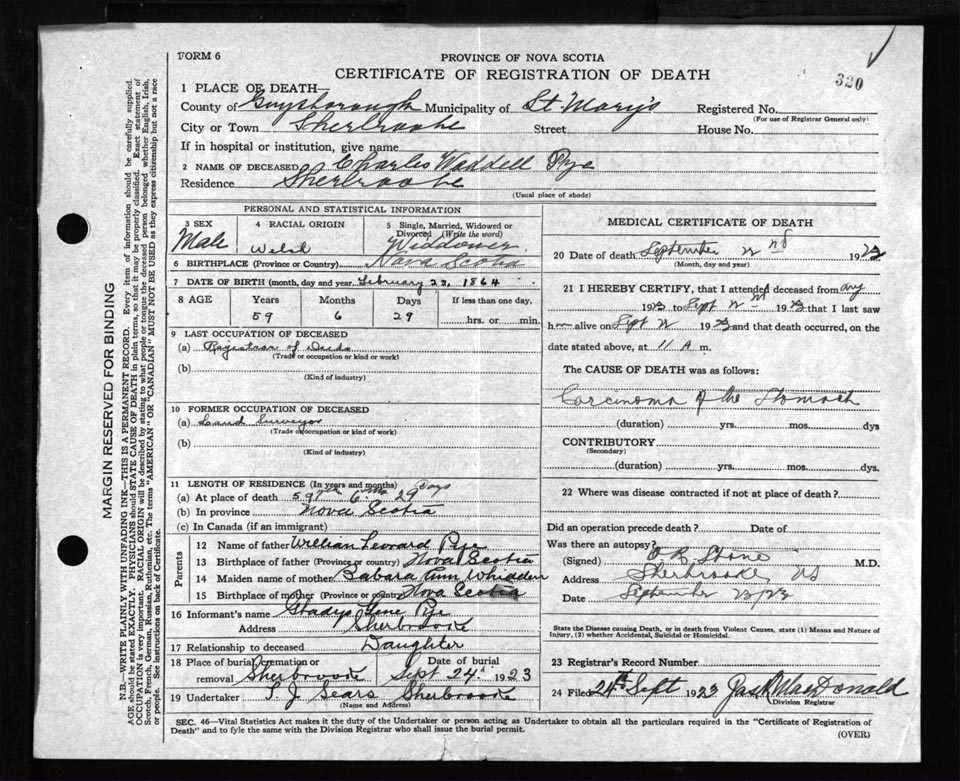 FORM 6
PROVINCE OF NOVA SCOTIA
CERTIFICATE OF REGISTRATION OF DEATH
320
1 PLACE OF DEATH—
County of Guysborough Municipality of St. Mary's Registered No.
(For use of Registrar General only)
City or Town Sherbrooke Street House No.
If in hospital or institution, give name
2 NAME OF DECEASED Charles Waddell Pye
Residence Sherbrooke
(Usual place of abode)
PERSONAL AND STATISTICAL INFORMATION
3 SEX 4 RACIAL ORIGIN 5 Single, Married, Widowed or Divorced (Write the word)
Male Welsh Widdower
6 BIRTHPLACE (Province or Country) Nova Scotia
7 DATE OF BIRTH (month, day and year) February 23, 1864
8 AGE Years Months Days If less than one day,
59 6 29 hrs. or min.
9 LAST OCCUPATION OF DECEASED
(a) Registrar of Deeds
(Trade or occupation or kind or work)
(b)
(Kind of industry)
10 FORMER OCCUPATION OF DECEASED
(a) Land Surveyor
(Trade or occupation or kind or work)
(b)
(Kind of industry)
11 LENGTH OF RESIDENCE (In years and months)
(a) At place of death 59 yrs 6 mths 29 days
(b) In province Nova Scotia
(c) In Canada (if an immigrant)
Parents
12 Name of father William Leonard Pye
13 Birthplace of father (Province or country) Nova Scotia
14 Maiden name of mother Babara Ann Whidden
15 Birthplace of mother (Province or country) Nova Scotia
16 Informant's name Gladys Pye
Address Sherbrooke
17 Relationship to deceased Daughter
18 Place of burial, cremation or removal Sherbrooke Date of burial Sept 24 1923
19 Undertaker T. J. Sears Sherbrooke
(Name and Address)
MEDICAL CERTIFICATE OF DEATH
20 Date of death September 22nd 1923
(Month, day and year)
21 I HEREBY CERTIFY, that I attended deceased from
1923 to Sept 22nd 1923 that I last saw
h alive on Sept 22 1923 and that death occurred, on the
date stated above, at 11 A m.
The CAUSE OF DEATH was as follows:
Carcinoma of the Stomach
(duration) yrs. mos. dys
CONTRIBUTORY
(Secondary)
(duration) yrs. mos. dys.
22 Where was disease contracted if not at place of death?
Did an operation precede death? Date of
Was there an autopsy?
(Signed) Stone M.D.
Address Sherbrooke, NS
Date September 23/23
State the Disease causing Death, or in death from Violent Causes, state (1) Means and Nature of
Injury, (2) whether Accidental, Suicidal or Homicidal.
23 Registrar's Record Number
24 Filed 24th Sept 1923 Jas MacDonald
Division Registrar
SEC. 46—Vital Statistics Act makes it the duty of the Undertaker or person acting as Undertaker to obtain all the particulars required in the "Certificate of Registration of
Death" and to fyle the same with the Division Registrar who shall issue the burial permit.
(OVER)
MARGIN RESERVED FOR BINDING
N.B.—WRITE PLAINLY WITH UNFADING INK—THIS IS A PERMANENT RECORD. Every item of information should be carefully supplied.
AGE should be stated EXACTLY. PHYSICIANS should STATE CAUSE OF DEATH in plain terms, so that it may be properly classified. Exact statement of
OCCUPATION is very important. RACIAL ORIGIN will be described by stating to what people or tongue the deceased person belonged whether English, Irish,
Scotch, French, German, Russian, Ruthenian, etc. The terms "AMERICAN" or "CANADIAN" MUST NOT BE USED as they express citizenship but not a race
or people. See instructions on back of Certificate.